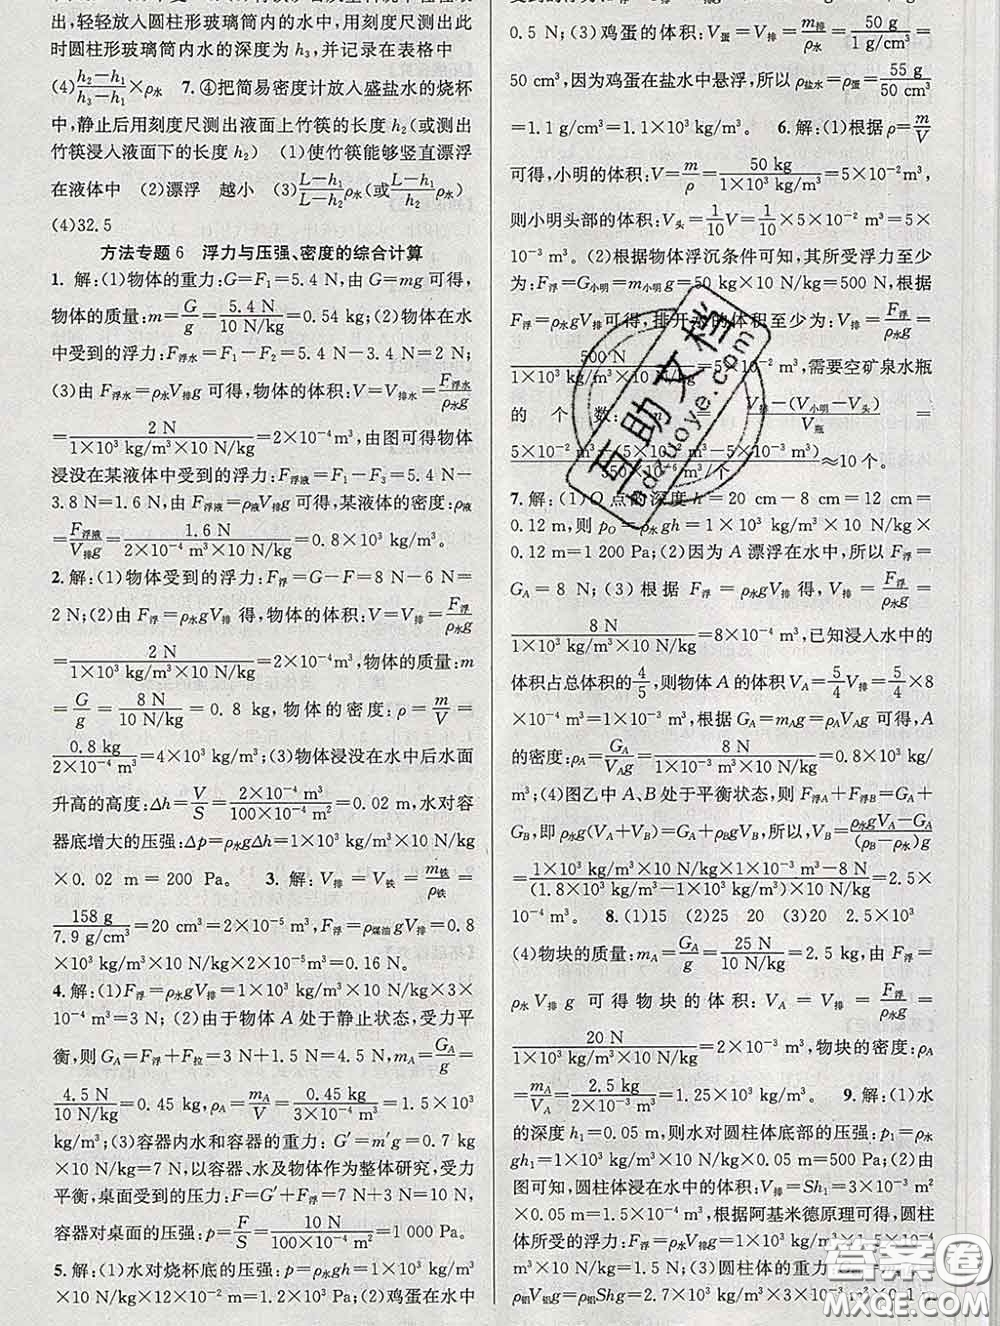 出,轻轻放入圆柱形玻璃筒内的水中,用刻度尺测出此
时圆柱形玻璃筒内水的深度为h₃,并记录在表格中
(4)(h₂-h₁)/(h₃-h₁)×ρ水 7.④把简易密度计放入盛盐水的烧杯
中,静止后用刻度尺测出液面上竹筷的长度h₂(或测出
竹筷浸入液面下的长度h₂) (1)使竹筷能够竖直漂浮
在液体中 (2)漂浮 越小 (3)(L-h₁)/(L-h₂)ρ水(或(L-h₁)/h₂ρ水)
(4)32.5
方法专题6 浮力与压强、密度的综合计算
1. 解:(1)物体的重力:G=F₁=5.4 N,由G=mg可得,
物体的质量:m=G/g=5.4 N/10 N/kg=0.54 kg;(2)物体在水
中受到的浮力:F浮水=F₁-F₂=5.4 N-3.4 N=2 N;
(3)由F浮水=ρ水V排g可得,物体的体积:V=V排水=F浮水/ρ水g
=2 N/(1×10³ kg/m³×10 N/kg)=2×10⁻⁴m³,由图可得物体
浸没在某液体中受到的浮力:F浮液=F₁-F₃=5.4 N
-3.8 N=1.6 N,由F浮液=ρ液V排g可得,某液体的密度:ρ液
=F浮液/V排g=1.6 N/(2×10⁻⁴ m³×10 N/kg)=0.8×10³ kg/m³。
2.解:(1)物体受到的浮力:F浮=G-F=8 N-6 N=
2 N;(2)由F浮=ρ水gV排得,物体的体积:V=V排=F浮/ρ水g
=2 N/(1×10³ kg/m³×10 N/kg)=2×10⁻⁴m³,物体的质量:m
=G/g=8 N/10 N/kg=0.8 kg,物体的密度:ρ=m/V=
0.8 kg/2×10⁻⁴ m³=4×10³ kg/m³;(3)物体浸没在水中后水面
升高的高度:Δh=V/S=2×10⁻⁴ m³/100×10⁻⁴ m²=0.02 m,水对容
器底增大的压强:Δp=ρ水gΔh=1×10³ kg/m³×10 N/kg
×0.02 m=200 Pa。 3.解:V排=V铁=m铁/ρ铁=
158 g/7.9 g/cm³=20 cm³=2×10⁻⁵ m³,F浮=ρ煤油gV排=0.8
×10³kg/m³×10 N/kg×2×10⁻⁵m³=0.16 N。
4.解:(1)F浮=ρ水gV排=1×10³ kg/m³×10 N/kg×3
×10⁻⁴ m³=3 N;(2)由于物体A处于静止状态,受力平
衡,则G_A=F浮+F拉=3 N+1.5 N=4.5 N,m_A=G_A/g=
4.5 N/10 N/kg=0.45 kg,ρ_A=m_A/V=0.45 kg/3×10⁻⁴ m³=1.5×10³
kg/m³;(3)容器内水和容器的重力:G′=m′g=0.7 kg
×10 N/kg=7 N,以容器、水及物体作为整体研究,受力
平衡,桌面受到的压力:F=G′+F浮=7 N+3 N=10 N,
容器对桌面的压强:p=F/S=10 N/100×10⁻⁴ m²=1 000 Pa。
5.解:(1)水对烧杯底的压强:p=ρ水gh=1×10³ kg/m³
×10 N/kg×12×10⁻² m=1.2×10³ Pa;(2)鸡蛋在水中
0.5 N;(3)鸡蛋的体积:V蛋=V排=m排/ρ水=50 g/1 g/cm³=
50 cm³,因为鸡蛋在盐水中悬浮,所以ρ盐水=ρ蛋=55 g/50 cm³
=1.1 g/cm³=1.1×10³ kg/m³。 6.解:(1)根据ρ=m/V
可得,小明的体积:V=m/ρ=50 kg/1×10³ kg/m³=5×10⁻²m³,
则小明头部的体积:V头=1/10V=1/10×5×10⁻² m³=5×
10⁻³ m³。(2)根据物体浮沉条件可知,其所受浮力至少
为:F浮=G小明=m小明g=50 kg×10 N/kg=500 N,根据
F浮=ρ水gV排可得,排开水的体积至少为:V排=F浮/ρ水g=
500 N/(1×10³ kg/m³×10 N/kg)=5×10⁻² m³,需要空矿泉水瓶
的个数:n=(V排-(V小明-V头))/V瓶=
≈10个。
7.解:(1)O点的深度h=20 cm-8 cm=12 cm=
0.12 m,则p_O=ρ水gh=1×10³ kg/m³×10 N/kg×
0.12 m=1 200 Pa;(2)因为A漂浮在水中,所以F浮=
G_A=8 N;(3)根据F浮=ρ水gV排得,V排=F浮/ρ水g=
8 N/(1×10³ kg/m³×10 N/kg)=8×10⁻⁴ m³,已知浸入水中的
体积占总体积的4/5,则物体A的体积V_A=5/4V排=5/4×8
×10⁻⁴ m³=1×10⁻³m³,根据G_A=m_Ag=ρ_AV_Ag可得,A
的密度:ρ_A=G_A/V_Ag=8 N/(1×10⁻³ m³×10 N/kg)=0.8×10³ kg/
m³;(4)图乙中A、B处于平衡状态,则F浮A+F浮B=G_A+
G_B,即ρ水g(V_A+V_B)=G_A+ρ_BgV_B,所以,V_B=(ρ水gV_A-G_A)/((ρ_B-ρ水)g)
=(1×10³ kg/m³×10 N/kg×1×10⁻³ m³-8 N)/((1.8×10³ kg/m³-1×10³ kg/m³)×10 N/kg)=2.5×
10⁻⁴ m³。 8.(1)15 (2)25 20 (3)20 2.5×10³
(4)物块的质量:m_A=G_A/g=25 N/10 N/kg=2.5 kg,由F浮=
ρ水V排g可得物块的体积:V_A=V排=F浮/ρ水g=
20 N/(1×10³ kg/m³×10 N/kg)=2×10⁻³ m³,物块的密度:ρ_A
=m_A/V_A=2.5 kg/2×10⁻³ m³=1.25×10³ kg/m³。 9.解:(1)水
的深度h₁=0.05 m,则水对圆柱体底部的压强:p₁=ρ水
gh₁=1×10³ kg/m³×10 N/kg×0.05 m=500 Pa;(2)由
图可知,圆柱体浸在水中的体积:V排=Sh₁=3×10⁻³ m²
×0.05 m=1.5×10⁻⁴ m³,根据阿基米德原理可得,圆柱
体所受的浮力:F浮=ρ水V排g=1×10³ kg/m³×1.5×
ρ铝V铝g=ρ铝Shg=2.7×10³ kg/m³×3×10⁻³ m²×0.1 m
互助文档
hdzuoye.com
答案圈
MXQE.COM